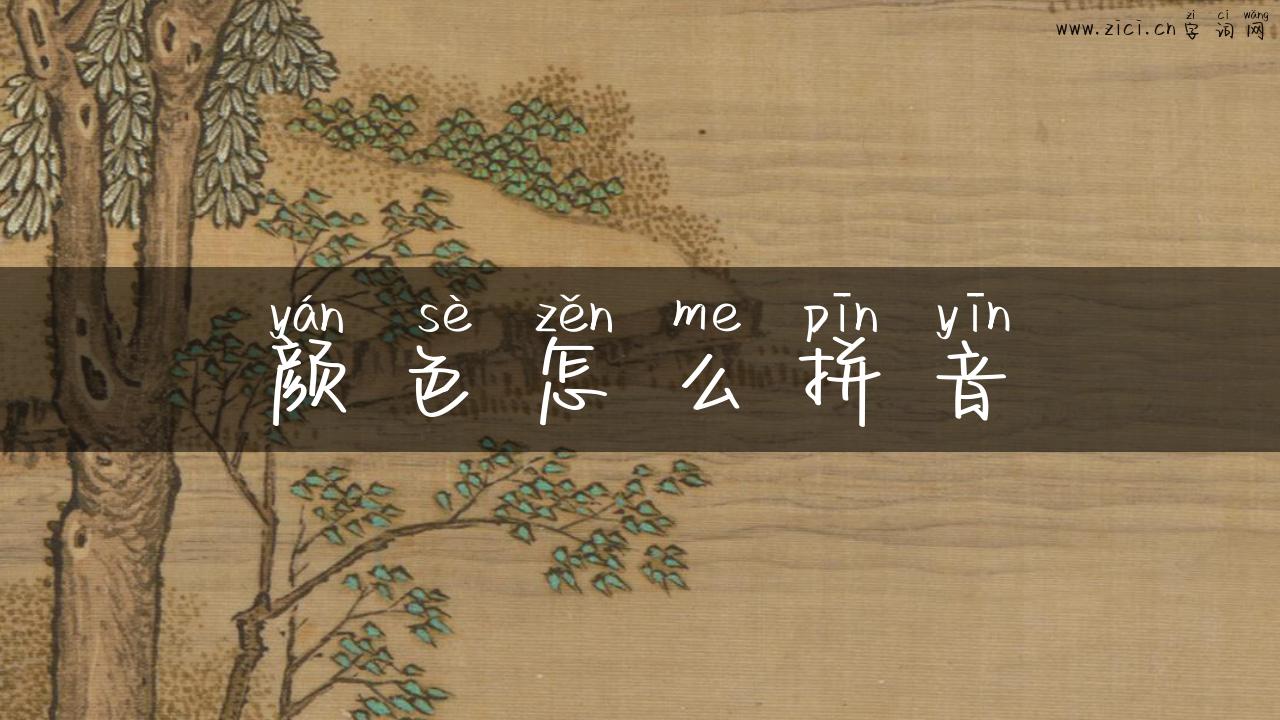 zì cí wǎng
www.zici.cn 字词网
yán sè zěn me pīn yīn
颜色怎么拼音